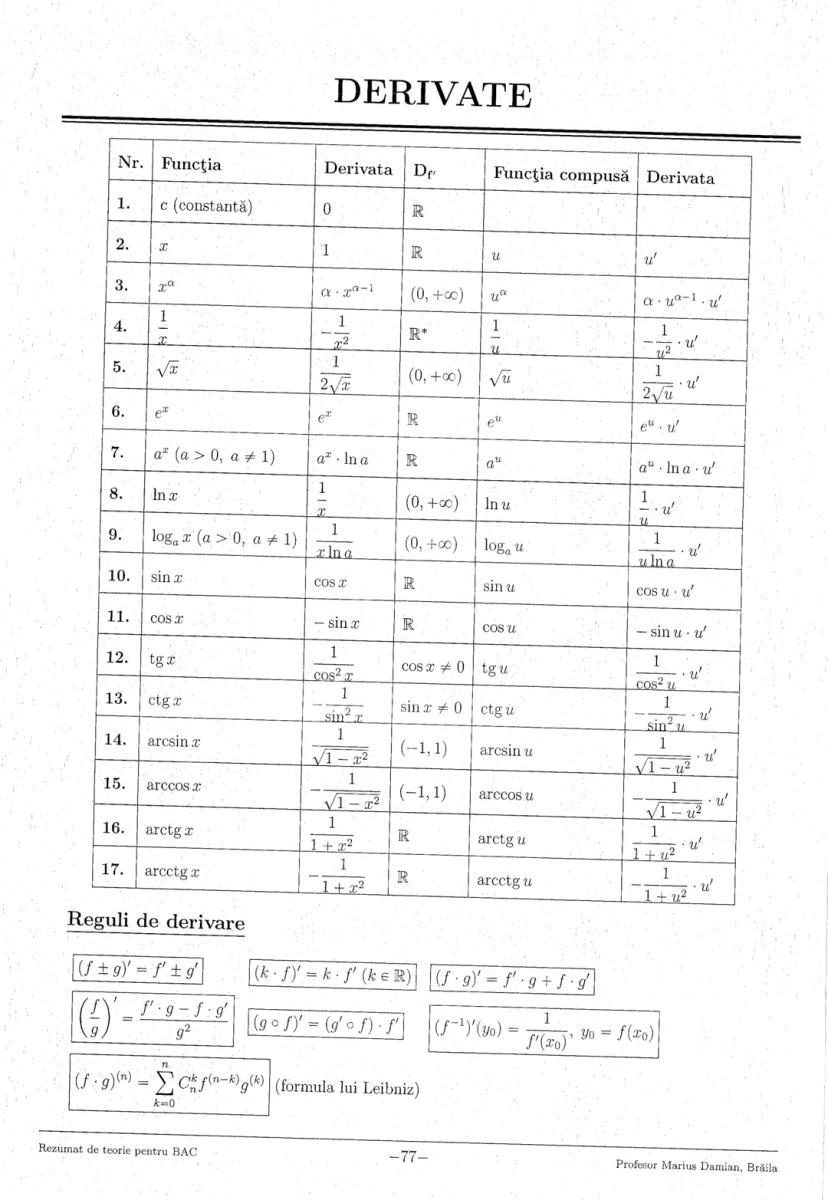 DERIVATE
Nr. Funcţia Derivata D_f′ Funcţia compusă Derivata
1. c (constantă) 0 ℝ
2. x 1 ℝ u u′
3. x^α α · x^(α−1) (0, +∞) u^α α · u^(α−1) · u′
4. 1/x −1/x² ℝ* 1/u −1/u² · u′
5. √x 1/(2√x) (0, +∞) √u 1/(2√u) · u′
6. e^x e^x ℝ e^u e^u · u′
7. a^x (a > 0, a ≠ 1) a^x · ln a ℝ a^u a^u · ln a · u′
8. ln x 1/x (0, +∞) ln u 1/u · u′
9. log_a x (a > 0, a ≠ 1) 1/(x ln a) (0, +∞) log_a u 1/(u ln a) · u′
10. sin x cos x ℝ sin u cos u · u′
11. cos x − sin x ℝ cos u − sin u · u′
12. tg x 1/cos² x cos x ≠ 0 tg u 1/cos² u · u′
13. ctg x −1/sin² x sin x ≠ 0 ctg u −1/sin² u · u′
14. arcsin x 1/√(1 − x²) (−1, 1) arcsin u 1/√(1 − u²) · u′
15. arccos x −1/√(1 − x²) (−1, 1) arccos u −1/√(1 − u²) · u′
16. arctg x 1/(1 + x²) ℝ arctg u 1/(1 + u²) · u′
17. arcctg x −1/(1 + x²) ℝ arcctg u −1/(1 + u²) · u′
Reguli de derivare
(f ± g)′ = f′ ± g′ (k · f)′ = k · f′ (k ∈ ℝ) (f · g)′ = f′ · g + f · g′
(f/g)′ = (f′ · g − f · g′)/g² (g ∘ f)′ = (g′ ∘ f) · f′ (f⁻¹)′(y₀) = 1/f′(x₀), y₀ = f(x₀)
(f · g)^(n) = ∑_{k=0}^{n} C_n^k f^(n−k) g^(k) (formula lui Leibniz)
Rezumat de teorie pentru BAC −77− Profesor Marius Damian, Brăila